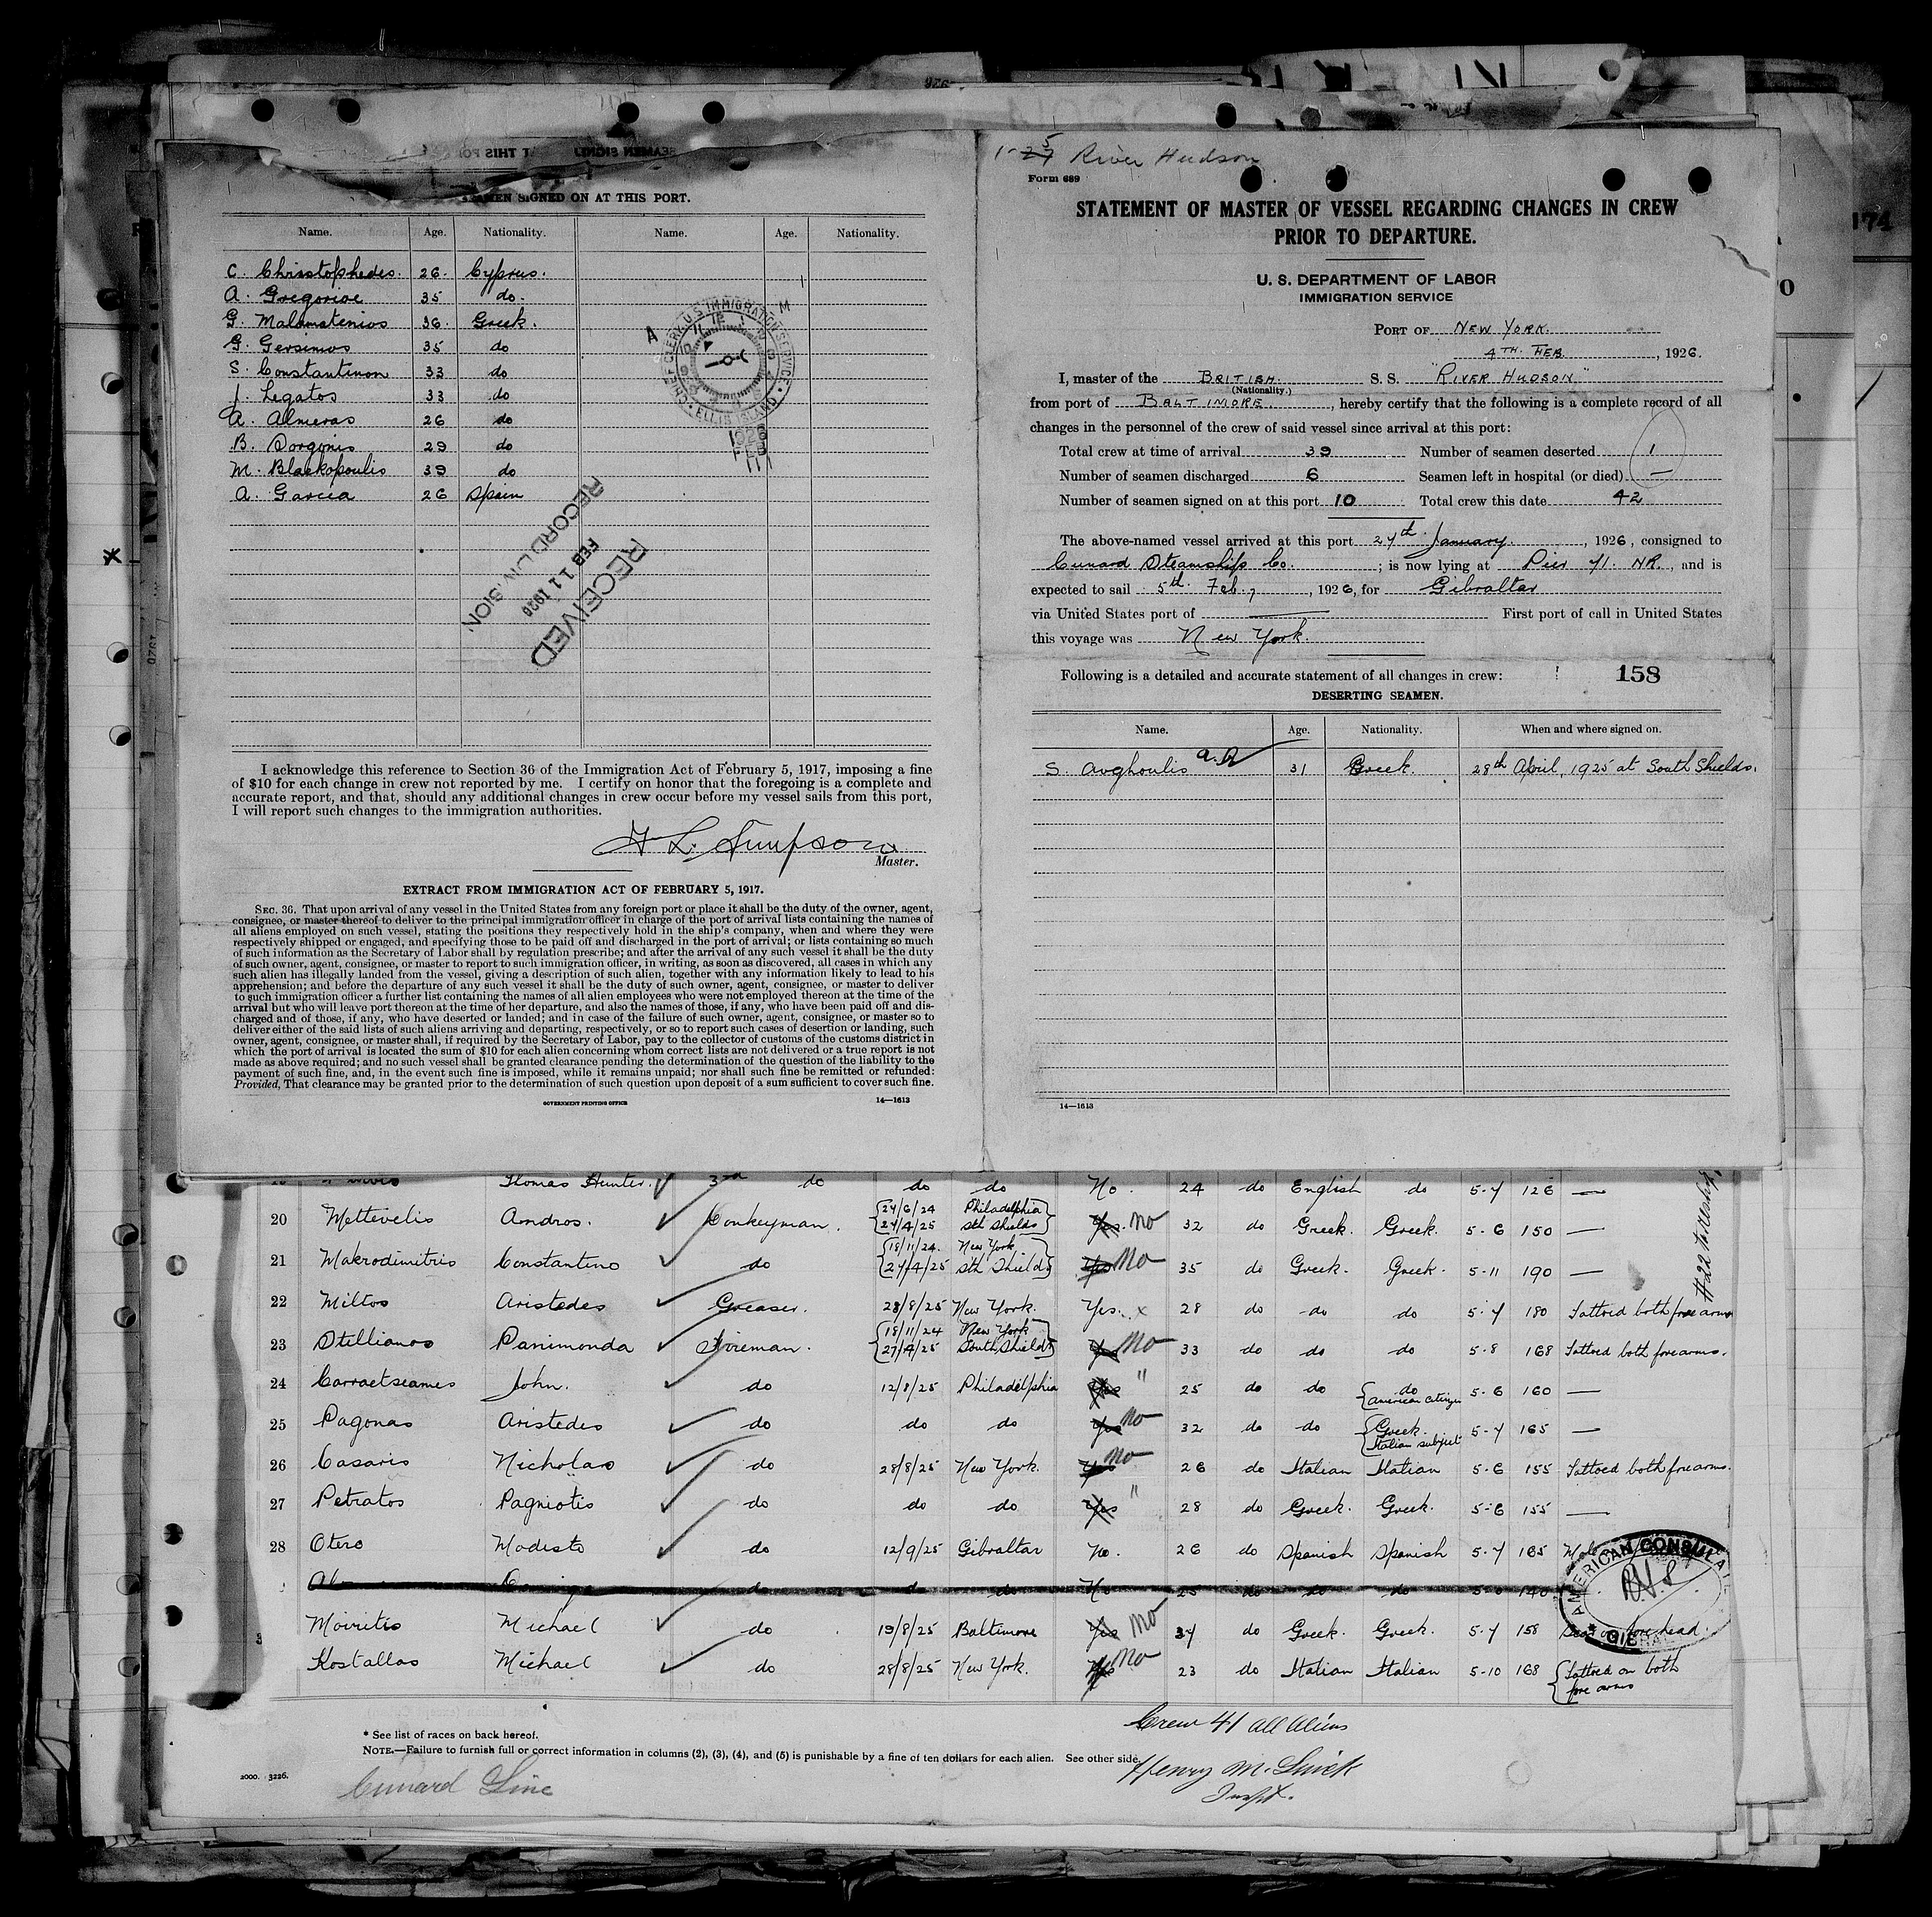 SEAMEN SIGNED ON AT THIS PORT.
Name. Age. Nationality. Name. Age. Nationality.
C. Christophedes. 26. Cyprus.
A. Gregoriou 35 do.
G. Malamatenios 36. Greek.
G. Gersimos 35 do
S. Constantinon 33 do
J. Legatos 33 do
A. Almeras 26 do
B. Dorgonis 29 do
M. Blackopoulis 39 do
A. Garcia 26 Spain
CHIEF CLERK, U.S. IMMIGRATION SERVICE, ELLIS ISLAND
A M
1926
FEB
11
RECEIVED
FEB 11 1926
RECORD DIVISION
I acknowledge this reference to Section 36 of the Immigration Act of February 5, 1917, imposing a fine
of $10 for each change in crew not reported by me. I certify on honor that the foregoing is a complete and
accurate report, and that, should any additional changes in crew occur before my vessel sails from this port,
I will report such changes to the immigration authorities.
H L. Simpson
Master.
EXTRACT FROM IMMIGRATION ACT OF FEBRUARY 5, 1917.
SEC. 36. That upon arrival of any vessel in the United States from any foreign port or place it shall be the duty of the owner, agent,
consignee, or master thereof to deliver to the principal immigration officer in charge of the port of arrival lists containing the names of
all aliens employed on such vessel, stating the positions they respectively hold in the ship's company, when and where they were
respectively shipped or engaged, and specifying those to be paid off and discharged in the port of arrival; or lists containing so much
of such information as the Secretary of Labor shall by regulation prescribe; and after the arrival of any such vessel it shall be the duty
of such owner, agent, consignee, or master to report to such immigration officer, in writing, as soon as discovered, all cases in which any
such alien has illegally landed from the vessel, giving a description of such alien, together with any information likely to lead to his
apprehension; and before the departure of any such vessel it shall be the duty of such owner, agent, consignee, or master to deliver
to such immigration officer a further list containing the names of all alien employees who were not employed thereon at the time of the
arrival but who will leave port thereon at the time of her departure, and also the names of those, if any, who have been paid off and dis-
charged and of those, if any, who have deserted or landed; and in case of the failure of such owner, agent, consignee, or master so to
deliver either of the said lists of such aliens arriving and departing, respectively, or so to report such cases of desertion or landing, such
owner, agent, consignee, or master shall, if required by the Secretary of Labor, pay to the collector of customs of the customs district in
which the port of arrival is located the sum of $10 for each alien concerning whom correct lists are not delivered or a true report is not
made as above required; and no such vessel shall be granted clearance pending the determination of the question of the liability to the
payment of such fine, and, in the event such fine is imposed, while it remains unpaid; nor shall such fine be remitted or refunded:
Provided, That clearance may be granted prior to the determination of such question upon deposit of a sum sufficient to cover such fine.
GOVERNMENT PRINTING OFFICE 14—1613
River Hudson
Form 689
STATEMENT OF MASTER OF VESSEL REGARDING CHANGES IN CREW
PRIOR TO DEPARTURE.
U. S. DEPARTMENT OF LABOR
IMMIGRATION SERVICE
PORT OF NEW YORK.
4TH. FEB. , 1926.
I, master of the BRITISH. S. S. "RIVER HUDSON"
(Nationality.)
from port of BALTIMORE. , hereby certify that the following is a complete record of all
changes in the personnel of the crew of said vessel since arrival at this port:
Total crew at time of arrival 39 Number of seamen deserted 1
Number of seamen discharged 6 Seamen left in hospital (or died) —
Number of seamen signed on at this port 10 Total crew this date 42
The above-named vessel arrived at this port 27th January. , 1926, consigned to
Cunard Steamship Co. ; is now lying at Pier 71. NR. , and is
expected to sail 5th. Feb., , 1926, for Gibraltar
via United States port of —— First port of call in United States
this voyage was New York.
Following is a detailed and accurate statement of all changes in crew: 158
DESERTING SEAMEN.
Name. Age. Nationality. When and where signed on.
S. Avghoulis 31 Greek. 28th April, 1925 at South Shields.
14—1613
Thomas Hunter. 3rd do do do No. 24 do English do 5-7 126 —
20 Mettevelis Andros. Donkeyman. 27/6/24 Philadelphia 27/4/25 Sth Shields Yes. No 32 do Greek. Greek. 5-6 150 —
21 Makrodimitris Constantino do 18/11/24. New York 27/4/25 Sth Shields Yes No 35 do Greek. Greek. 5-11 190 —
22 Miltos Aristedes Greaser. 28/8/25 New York. Yes. x 28 do do do 5-7 180 Tattoed both fore arms
23 Stellianos Panimonda Fireman. 18/11/24 New York 27/4/25 South Shields Yes No 33 do do do 5-8 168 Tattoed both forearms.
24 Carraetseames John. do 12/8/25 Philadelphia Yes " 25 do do do American citizen 5-6 160 —
25 Pagonas Aristedes do do do Yes No 32 do do Greek. Italian subject 5-7 165 —
26 Casaris Nicholas do 28/8/25 New York. Yes No 26 do Italian Italian 5-6 155 Tattoed both forearms.
27 Petratos Pagniotis do do do Yes " 28 do Greek. Greek. 5-6 155 —
28 Otero Modesto do 12/9/25 Gibraltar No. 26 do Spanish Spanish 5-7 165
do do do No 25 do do do 5-0 140
Moiritis Michael do 19/8/25 Baltimore Yes No 37 do Greek. Greek. 5-7 158 Scar on forehead.
Kostallas Michael do 28/8/25 New York. Yes No 23 do Italian Italian 5-10 168 Tattoed on both fore arms
AMERICAN CONSULATE GIBRALTAR
* See list of races on back hereof.
NOTE.—Failure to furnish full or correct information in columns (2), (3), (4), and (5) is punishable by a fine of ten dollars for each alien. See other side.
2000. 3226.
Cunard Line
Crew 41 all Aliens
Henry M.
Inspt.
174